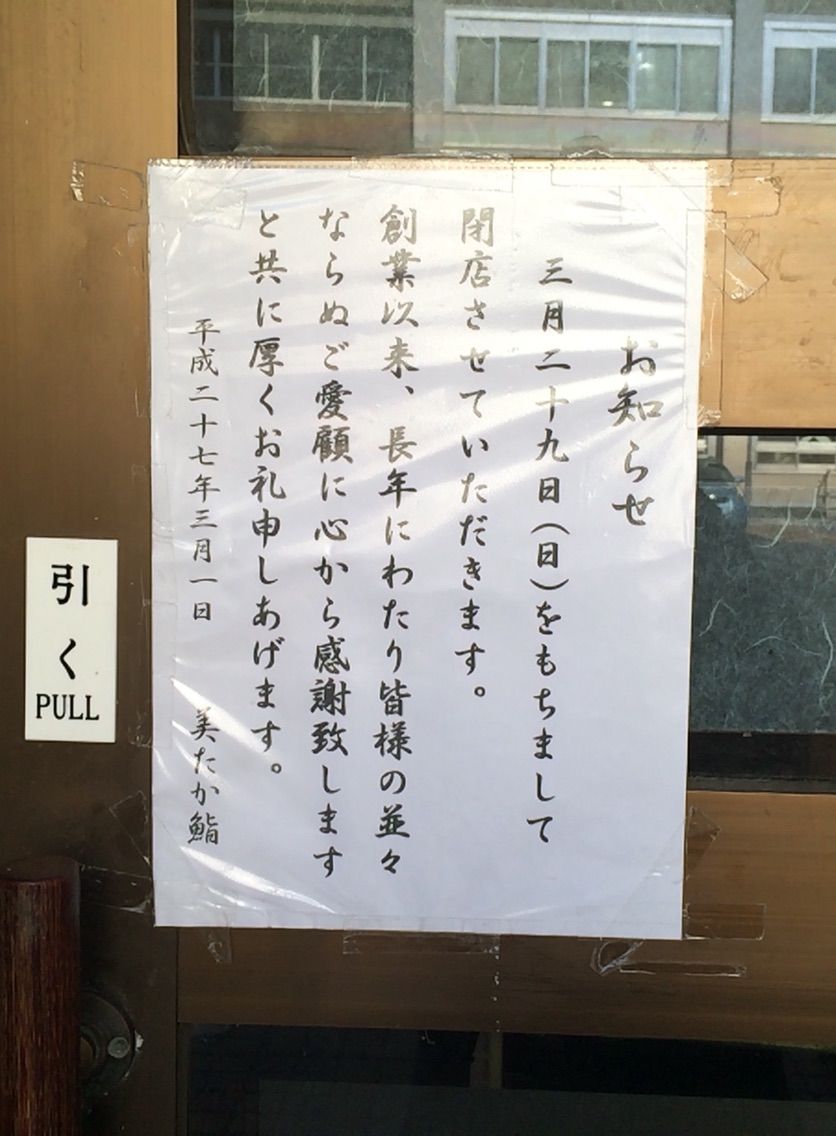 お知らせ
三月二十九日（日）をもちまして
閉店させていただきます。
創業以来、長年にわたり皆様の並々
ならぬご愛顧に心から感謝致します
と共に厚くお礼申しあげます。
平成二十七年三月一日　美たか鮨
引く
PULL